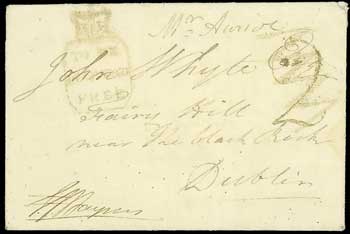 Mr.
2
John Whyte
FREE
Fairy Hill
near The black Rock
Dublin